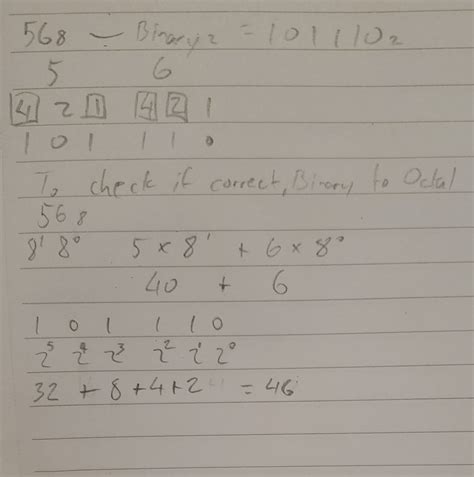 56₈ — Binary₂ = 101110₂
5 6
4 2 1 4 2 1
1 0 1 1 1 0
To check if correct, Binary to Octal
56₈
8¹ 8⁰ 5 × 8¹ + 6 × 8⁰
40 + 6
1 0 1 1 1 0
2⁵ 2⁴ 2³ 2² 2¹ 2⁰
32 + 8 + 4 + 2 = 46